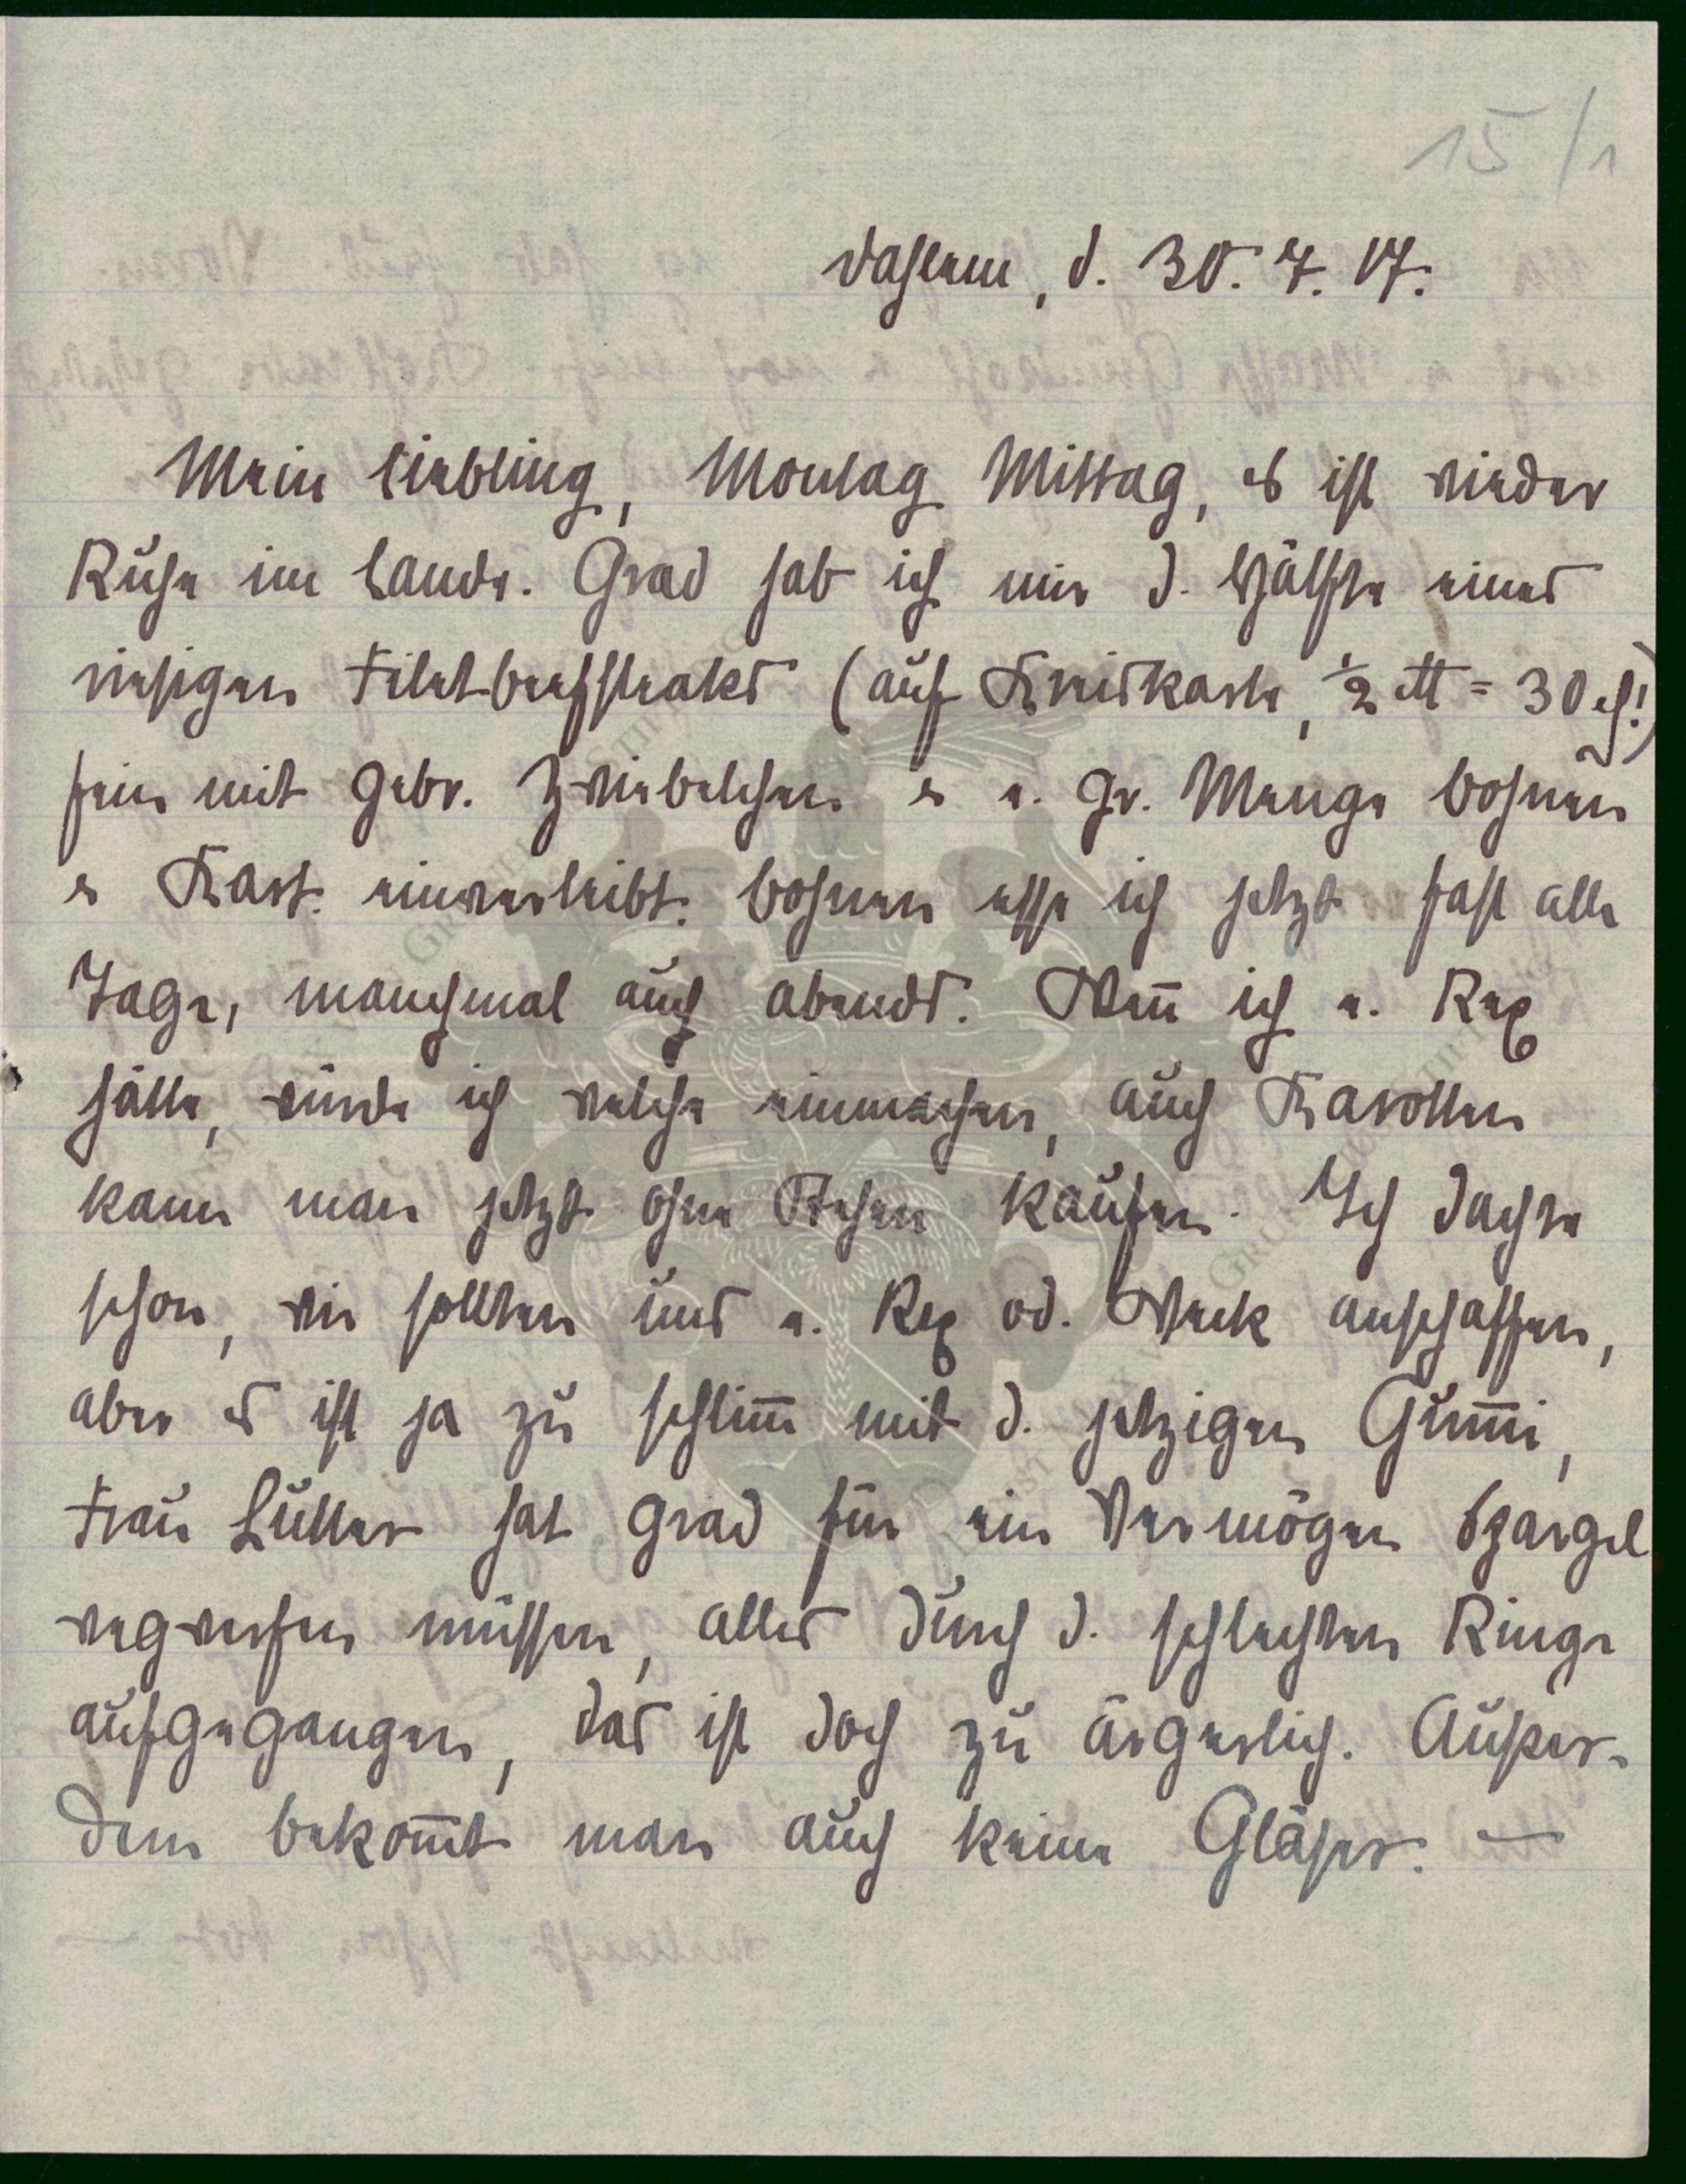 15/1
Dahlem, d. 30. 7. 17.
Mein Liebling, Montag Mittag, es ist wieder
Ruhe im Lande. Grad hab ich mir d. Hälfte eines
riesigen Filetbeefsteaks (auf Kreiskarte, ½ ℔ = 30 ₰!)
fein mit gebr. Zwiebelchen & e. gr. Menge Bohnen
& Kart. einverleibt. Bohnen esse ich jetzt fast alle
Tage, manchmal auch abends. Wen̄ ich e. Rex
hätte, würde ich welche einmachen, auch Karotten
kann man jetzt ohne Stehen kaufen. Ich dachte
schon, wir sollten uns e. Rex od. Weck anschaffen,
aber es ist ja zu schlim̄ mit d. jetzigen Gum̄i,
Frau Lüllar hat grad für ein Vermögen Spargel
wegwerfen müssen, alles durch d. schlechten Ringe
aufgegangen, das ist doch zu ärgerlich. Außer-
dem bekom̄t man auch keine Gläser. —